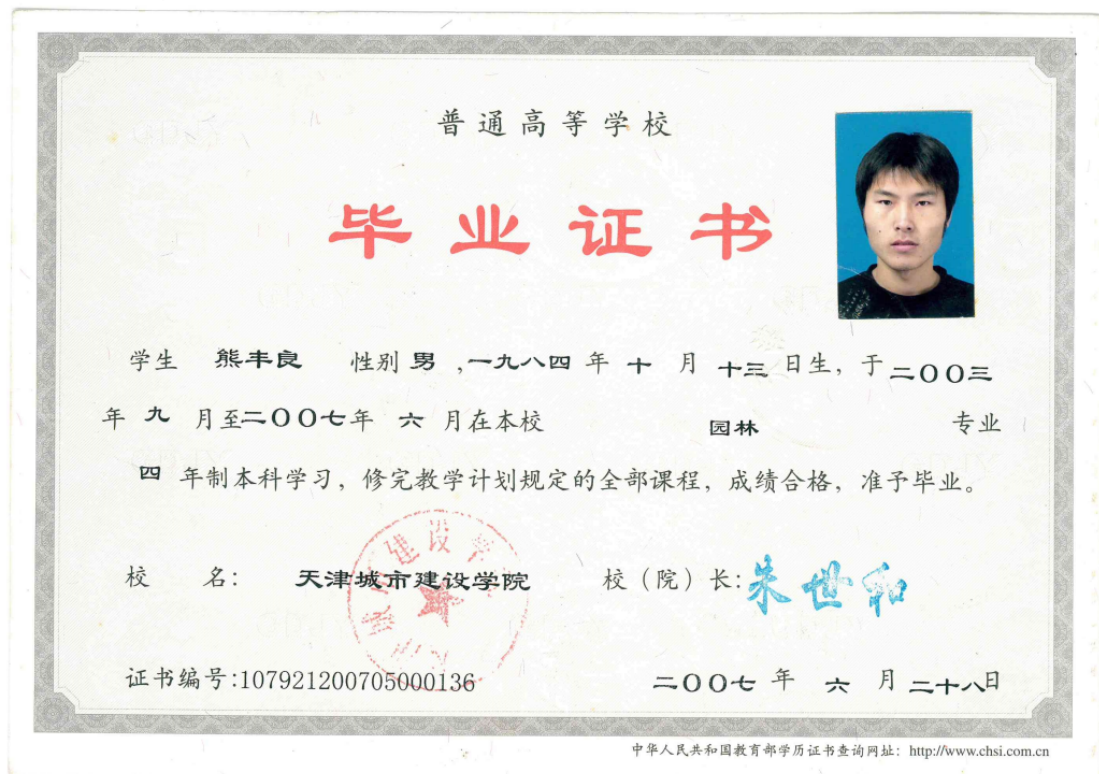 普通高等学校
毕业证书
学生 熊丰良 性别 男 ,一九八四 年 十 月 十三 日生，于 二〇〇三
年 九 月至二〇〇七年 六 月在本校 园林 专业
四 年制本科学习，修完教学计划规定的全部课程，成绩合格，准予毕业。
校 名： 天津城市建设学院 校（院）长：朱世和
证书编号:107921200705000136 二〇〇七 年 六 月 二十八日
中华人民共和国教育部学历证书查询网址：http://www.chsi.com.cn